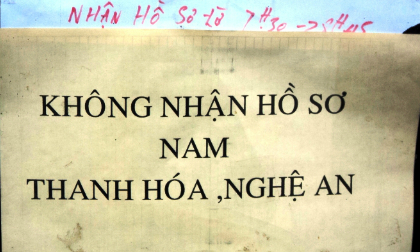 NHẬN HỒ SƠ TỪ 7H30 →
KHÔNG NHẬN HỒ SƠ
NAM
THANH HÓA ,NGHỆ AN